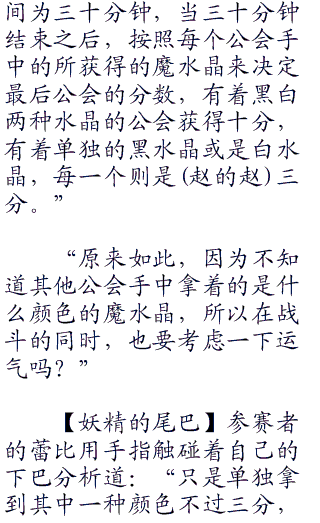 间为三十分钟，当三十分钟
结束之后，按照每个公会手
中的所获得的魔水晶来决定
最后公会的分数，有着黑白
两种水晶的公会获得十分，
有着单独的黑水晶或是白水
晶，每一个则是(赵的赵)三
分。”
“原来如此，因为不知
道其他公会手中拿着的是什
么颜色的魔水晶，所以在战
斗的同时，也要考虑一下运
气吗？”
【妖精的尾巴】参赛者
的蕾比用手指触碰着自己的
下巴分析道：“只是单独拿
到其中一种颜色不过三分，